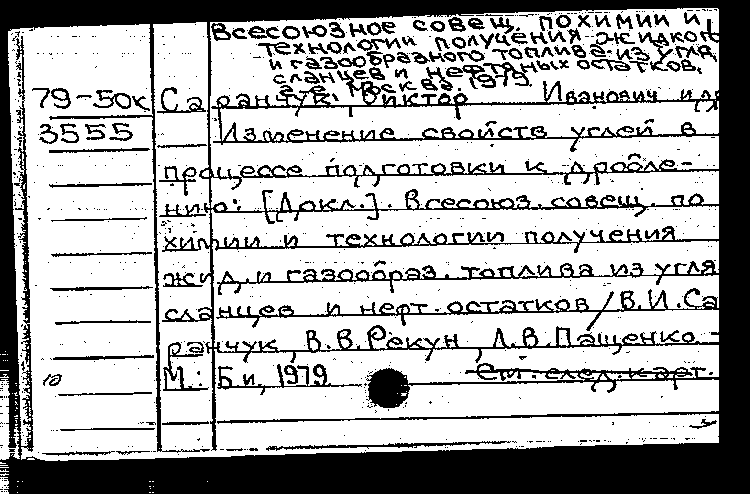 Всесоюзное совещ. по химии и
технологии получения жидког
и газообразного топлива из угля,
сланцев и нефтяных остатков.
2-е. Москва. 1979
79-50к Саранчук, Виктор Иванович и др
3555 Изменение свойств углей в
процессе подготовки к дробле-
нию: [Докл.]. Всесоюз. совещ. по
химии и технологии получения
жид. и газообраз. топлива из угля
сланцев и нефт. остатков / В.И.Са
ранчук, В.В.Рекун, Л.В.Пащенко -
10 М.: Б и, 1979 См. след. карт.